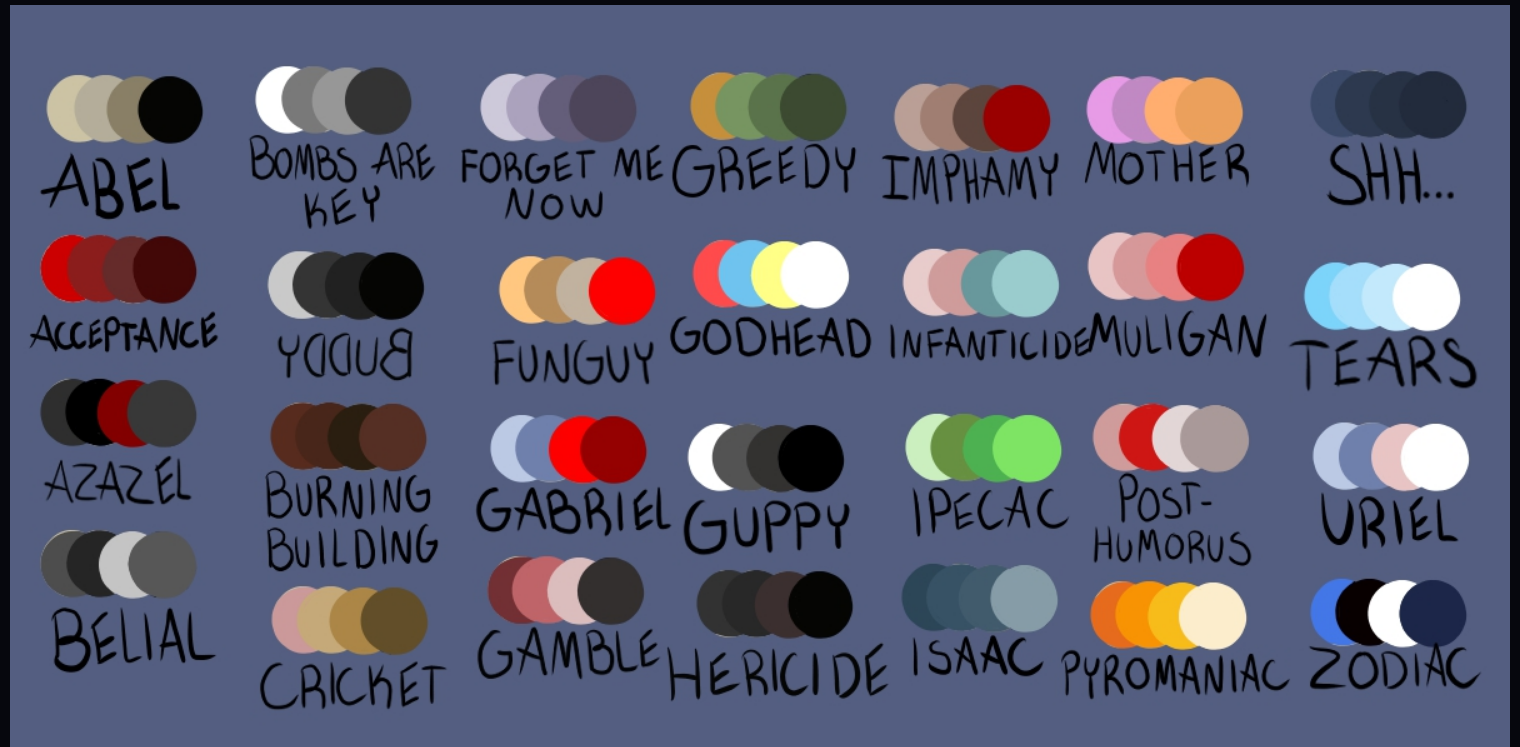 ABEL
ACCEPTANCE
AZAZEL
BELIAL
BOMBS ARE
KEY
BUDDY
BURNING
BUILDING
CRICKET
FORGET ME
NOW
FUNGUY
GABRIEL
GAMBLE
GREEDY
GODHEAD
GUPPY
HERICIDE
IMPHAMY
INFANTICIDE
IPECAC
ISAAC
MOTHER
MULIGAN
POST-
HUMORUS
PYROMANIAC
SHH...
TEARS
URIEL
ZODIAC